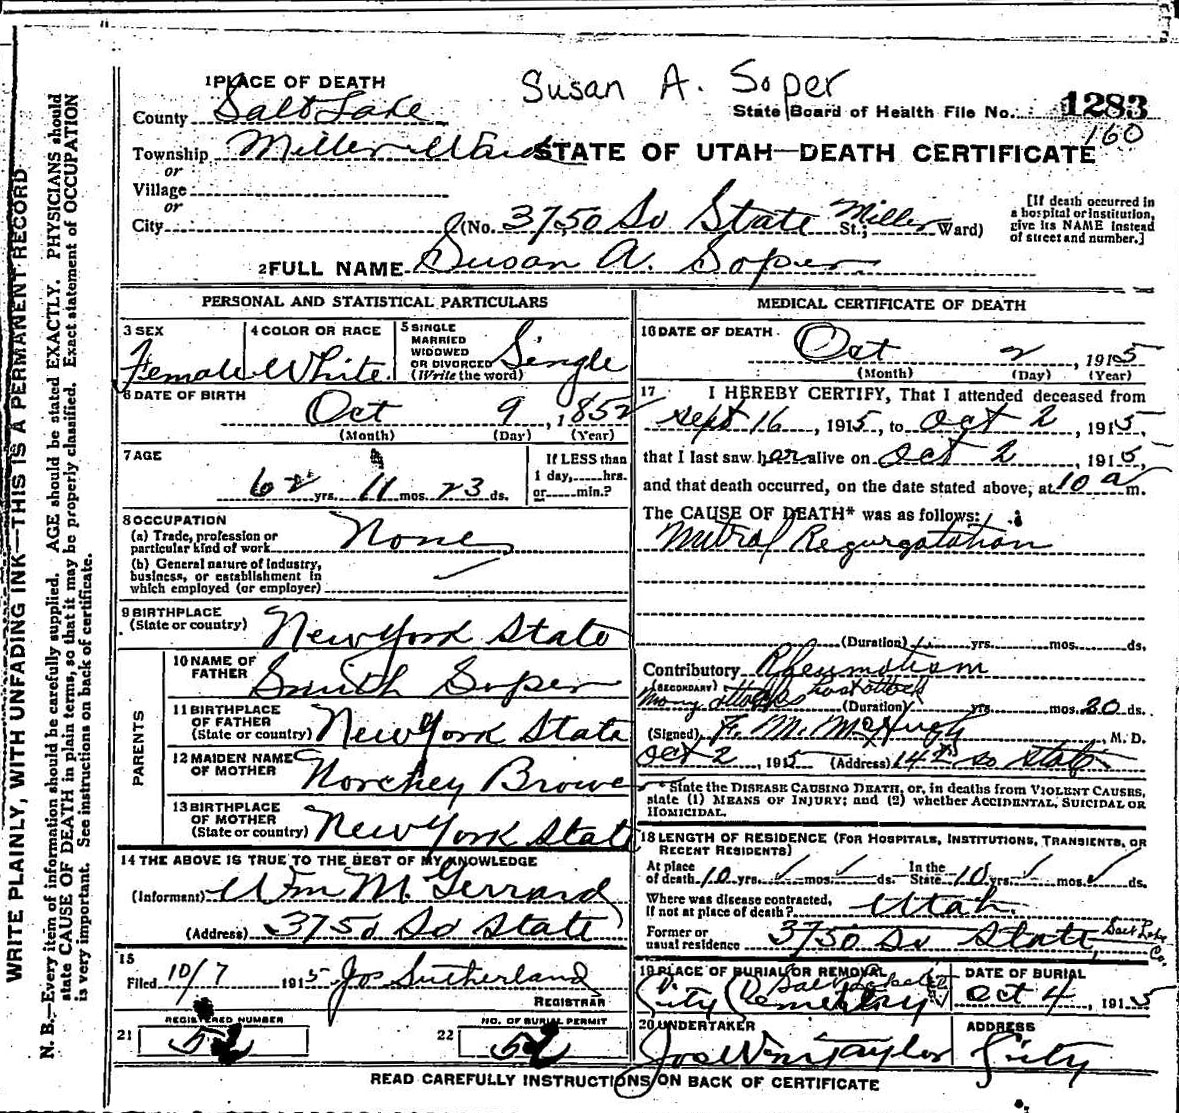 Susan A. Soper
1 PLACE OF DEATH
State Board of Health File No. 1283
160
County Salt Lake
Township Miller Ward
STATE OF UTAH—DEATH CERTIFICATE
or
Village
or
City (No. 3750 So State St.; Miller Ward)
[If death occurred in a hospital or institution, give its NAME instead of street and number.]
2 FULL NAME Susan A. Soper
PERSONAL AND STATISTICAL PARTICULARS
3 SEX Female
4 COLOR OR RACE White
5 SINGLE MARRIED WIDOWED OR DIVORCED (Write the word) Single
6 DATE OF BIRTH Oct 9, 1852
(Month) (Day) (Year)
7 AGE 62 yrs. 11 mos. 23 ds.
If LESS than 1 day, hrs. or min.?
8 OCCUPATION
(a) Trade, profession or particular kind of work None
(b) General nature of industry, business, or establishment in which employed (or employer)
9 BIRTHPLACE (State or country) New York State
PARENTS
10 NAME OF FATHER Smith Soper
11 BIRTHPLACE OF FATHER (State or country) New York State
12 MAIDEN NAME OF MOTHER Norchey Browe
13 BIRTHPLACE OF MOTHER (State or country) New York State
14 THE ABOVE IS TRUE TO THE BEST OF MY KNOWLEDGE
(Informant) Wm M. Gerrard
(Address) 3750 So State
15
Filed 10/7 1915 Jos Sutherland
REGISTRAR
21 REGISTERED NUMBER
22 NO. OF BURIAL PERMIT
MEDICAL CERTIFICATE OF DEATH
16 DATE OF DEATH Oct 2, 1915
(Month) (Day) (Year)
17 I HEREBY CERTIFY, That I attended deceased from
Sept 16, 1915, to Oct 2, 1915,
that I last saw her alive on Oct 2, 1915,
and that death occurred, on the date stated above, at 10 a m.
The CAUSE OF DEATH* was as follows:
Mitral Regurgatation
(Duration) yrs. mos. ds.
Contributory Rheumatism
(SECONDARY) many attacks last attack (Duration) yrs. mos. 20 ds.
(Signed) F. M. McHugh, M. D.
Oct 2, 1915 (Address) 142 so state
* State the DISEASE CAUSING DEATH, or, in deaths from VIOLENT CAUSES, state (1) MEANS OF INJURY; and (2) whether ACCIDENTAL, SUICIDAL OR HOMICIDAL.
18 LENGTH OF RESIDENCE (FOR HOSPITALS, INSTITUTIONS, TRANSIENTS, OR RECENT RESIDENTS)
At place of death 10 yrs. mos. ds. In the State 10 yrs. mos. ds.
Where was disease contracted, if not at place of death? Utah
Former or usual residence 3750 So State, Salt Lake Co.
19 PLACE OF BURIAL OR REMOVAL City Cemetery
DATE OF BURIAL Oct 4, 1915
20 UNDERTAKER Jos Wm Taylor
ADDRESS City
READ CAREFULLY INSTRUCTIONS ON BACK OF CERTIFICATE
WRITE PLAINLY, WITH UNFADING INK—THIS IS A PERMANENT RECORD
N. B.—Every item of information should be carefully supplied. AGE should be stated EXACTLY. PHYSICIANS should
state CAUSE OF DEATH in plain terms, so that it may be properly classified. Exact statement of OCCUPATION
is very important. See instructions on back of certificate.